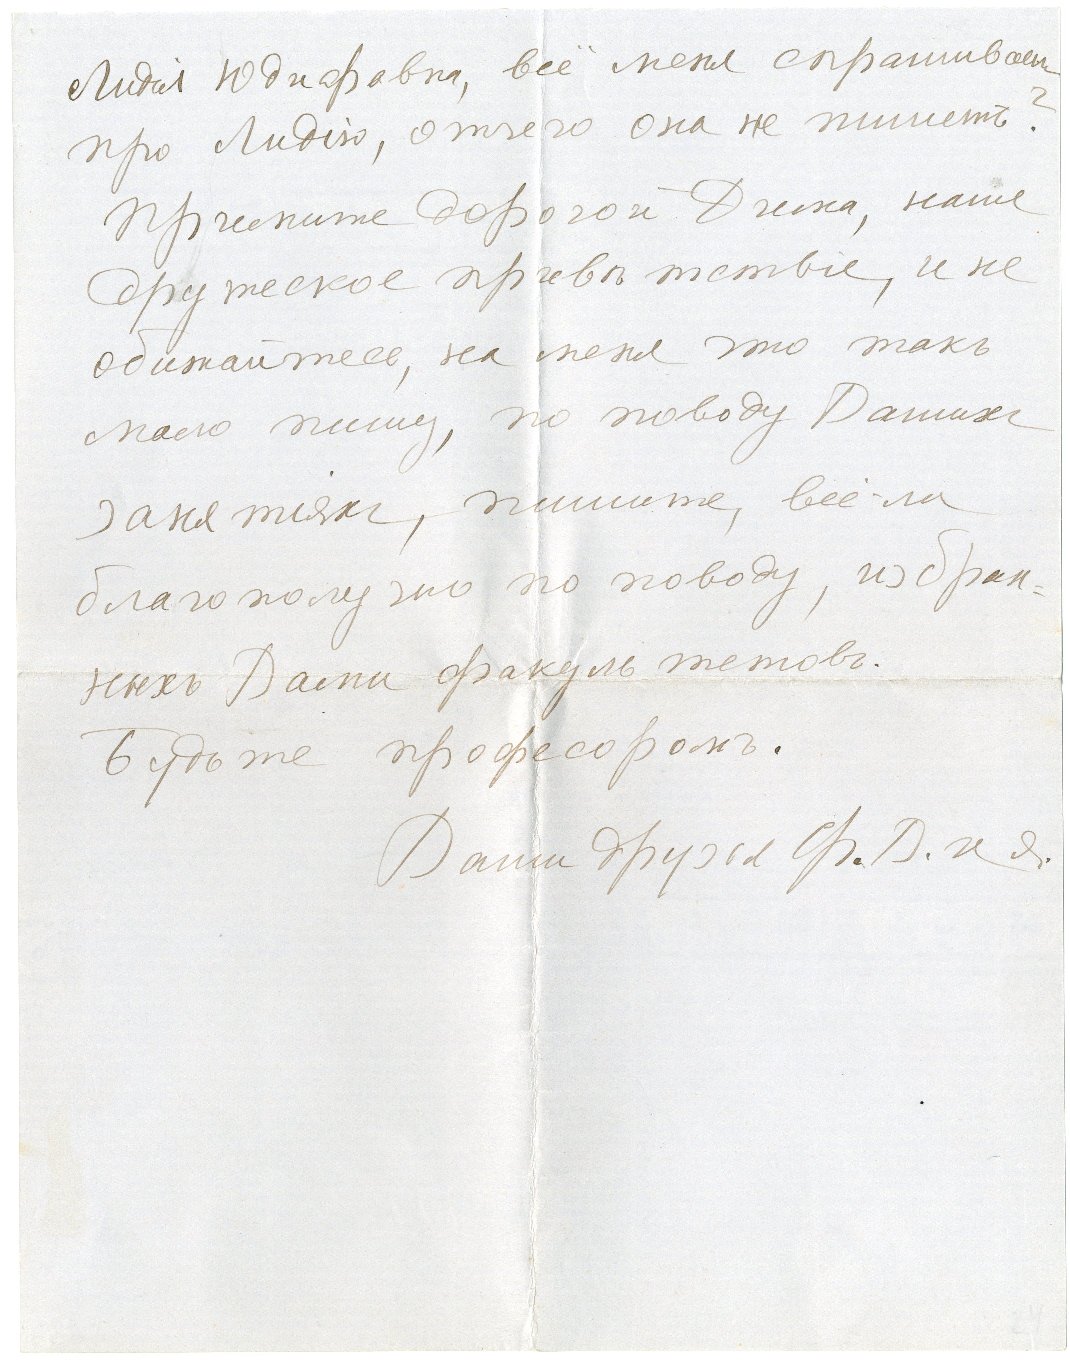 Лидiя Юдифовна, всё меня спрашиваетъ
про Лидiю, отчего она не пишетъ?
Примите дорогой Дима, наше
дружеское привѣтствiе, и не
обижайтесь, на меня что такъ
мало пишу, по поводу Вашихъ
занятiяхъ, пишите, всё-ли
благополучно по поводу, избран=
ныхъ Вами факультетовъ.
Будьте професоромъ.
Ваши друзья Ф. В. и я.
24